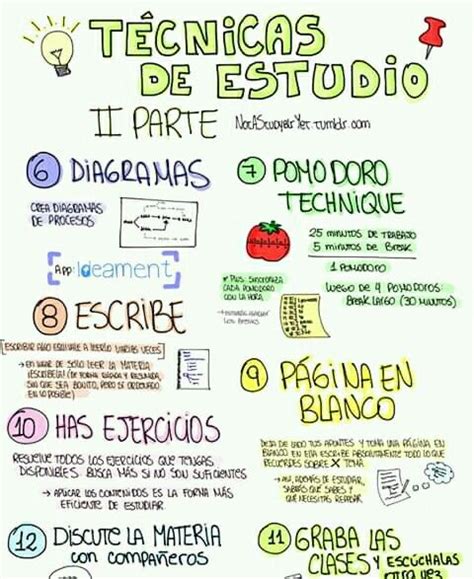 TÉCNICAS
DE ESTUDIO
II PARTE
NotAStudyblrYet.tumblr.com
6 DIAGRAMAS
CREA DIAGRAMAS
DE PROCESOS
App: Ideament
7 POMODORO
TECHNIQUE
25 MINUTOS DE TRABAJO
5 minutos de Break
1 POMODORO
LUEGO DE 4 POMODOROS:
BREAK LARGO (30 MINUTOS)
* Plus: SINCRONIZA
CADA POMODORO
CON LA HORA
8 ESCRIBE
ESCRIBIR ALGO EQUIVALE A LEERLO VARIAS VECES
→ EN VEZ DE SOLO LEER LA MATERIA
¡ESCRÍBELA! (DE FORMA RÁPIDA Y RESUMIDA,
SIN QUE SEA BONITO, PERO SÍ ORDENADO
EN LO POSIBLE)
9 PÁGINA EN
BLANCO
DEJA DE LADO TUS APUNTES Y TOMA UNA PÁGINA EN
BLANCO EN ELLA ESCRIBE ABSOLUTAMENTE TODO LO QUE
RECUERDES SOBRE X TEMA
→ ASÍ, ADEMÁS DE ESTUDIAR,
SABRÁS QUE SABES Y
QUE NECESITAS REPASAR
10 HAS EJERCICIOS
RESUELVE TODOS LOS EJERCICIOS QUE TENGAS
DISPONIBLES. BUSCA MÁS SI NO SON SUFICIENTES
→ APLICAR LOS CONTENIDOS ES LA FORMA MÁS
EFICIENTE DE ESTUDIAR.
11 GRABA LAS
CLASES Y ESCÚCHALAS
OTRA VEZ
12 DISCUTE LA MATERIA
con compañeros